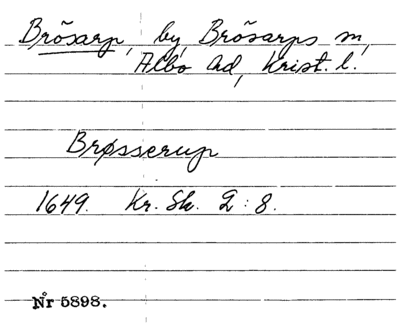 Brösarp, by, Brösarps sn,
Albo hd, Krist. l.
Brøsserup
1649. Kr. Sk. 2:8.
Nr 5898.